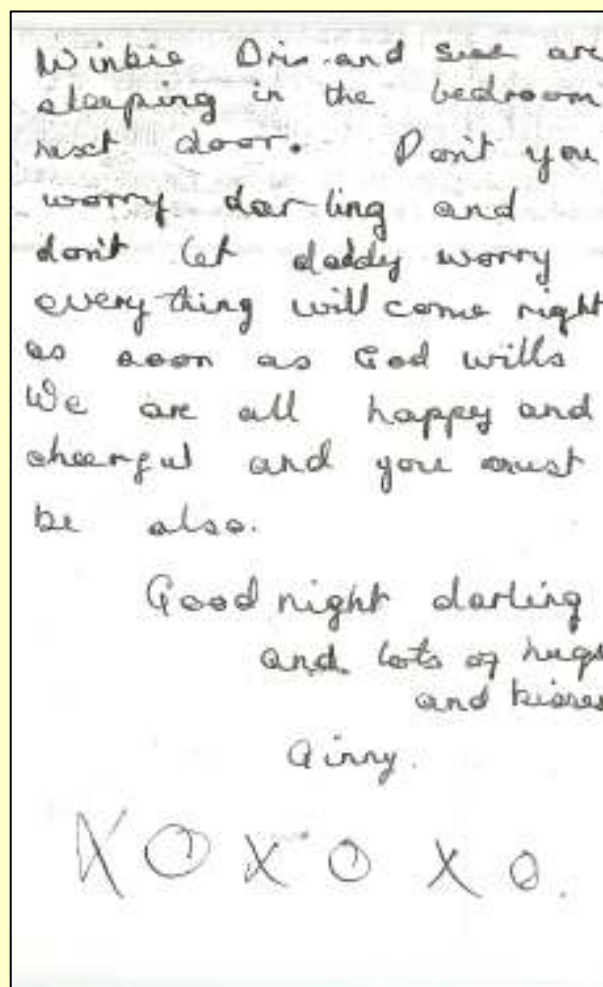 Winkie Dris and Sue are
sleeping in the bedroom
next door. Don't you
worry darling and
don't let daddy worry
everything will come right
as soon as God wills
We are all happy and
cheerful and you must
be also.
Good night darling
and lots of hugs
and kisses
Ginny.
X O X O X O.